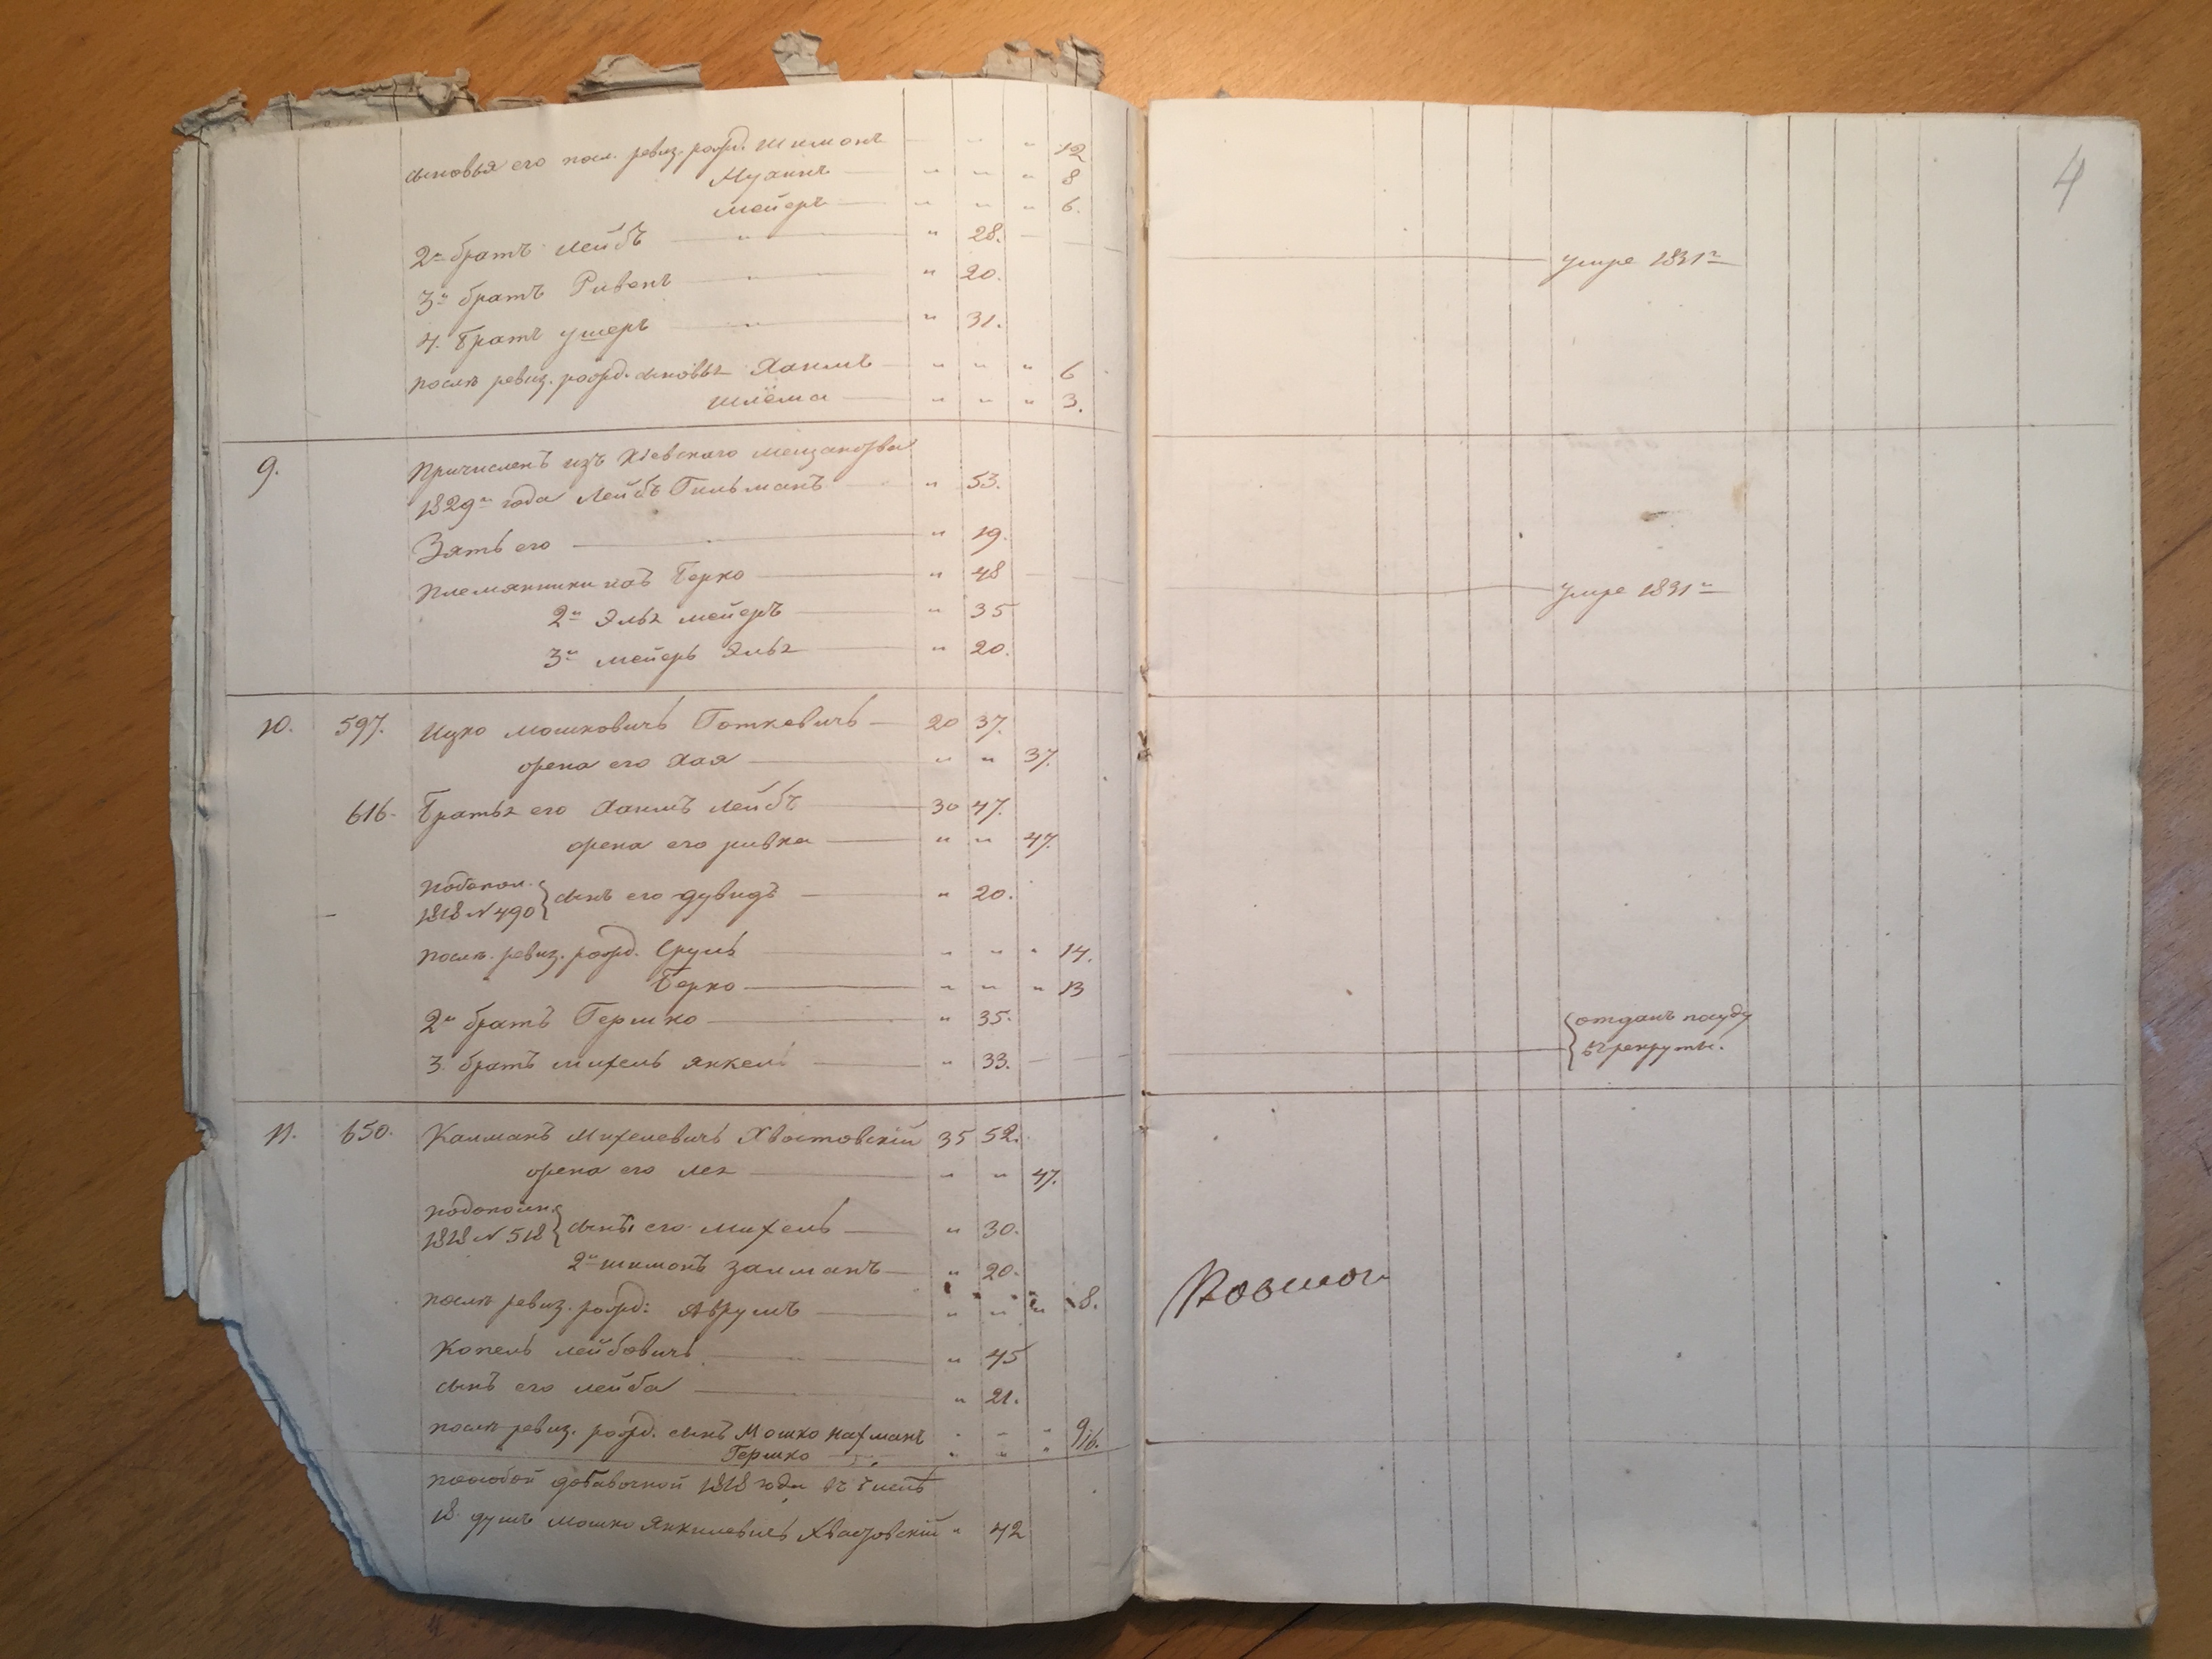 4
сыновья его посл. ревиз. рожд. Шимонъ " " " 12
" " " 8
Мейеръ " " " 6.
2й братъ Лейбъ " " 28. умре 1831го
3й братъ Рувенъ " " 20.
4. братъ Ушеръ " " 31.
послѣ ревиз. рожд. сыновья Хаимъ " " " 6
Шлёма " " " 3.
9. Причисленъ изъ Кіевскаго мещанства
1829го года Лейбъ Гильманъ " 53.
Зять его " 19.
Племянники 1й Берко " 48 умре 1831го
2й Эль мейеръ " 35
3й мейеръ Эль " 20.
10. 597. Ицко Мошковичъ Готкевичъ 20 37.
жена его Хая " " 37.
616. Братья его Хаимъ Лейбъ 30 47.
жена его ривка " " 47.
1818 N 490 } сынъ его Дувидъ " 20.
послѣ. ревиз. рожд. Сруль " " " 14.
Берко " " " 13
2й братъ Гершко " 35.
3. братъ Михель Янкель " 33. { отданъ
въ рекруты.
11. 650. Калманъ Михелевичъ Хвостовскій 35 52.
жена его Лея " " 47.
1818 N 518 } сынъ его Михель " 30.
2й Шимонъ Залманъ " 20.
послѣ ревиз. рожд: Аврумъ " " " 8.
Копель Лейбовичъ " 45
сынъ его Лейба " 21.
послѣ ревиз. рожд. сынъ Мошко Нахманъ " " " 9
Гершко " " " 6.
по особой добавочной 1818 года въ числѣ
18 душъ Мошко Янкилевичъ Хвастовскій " 42